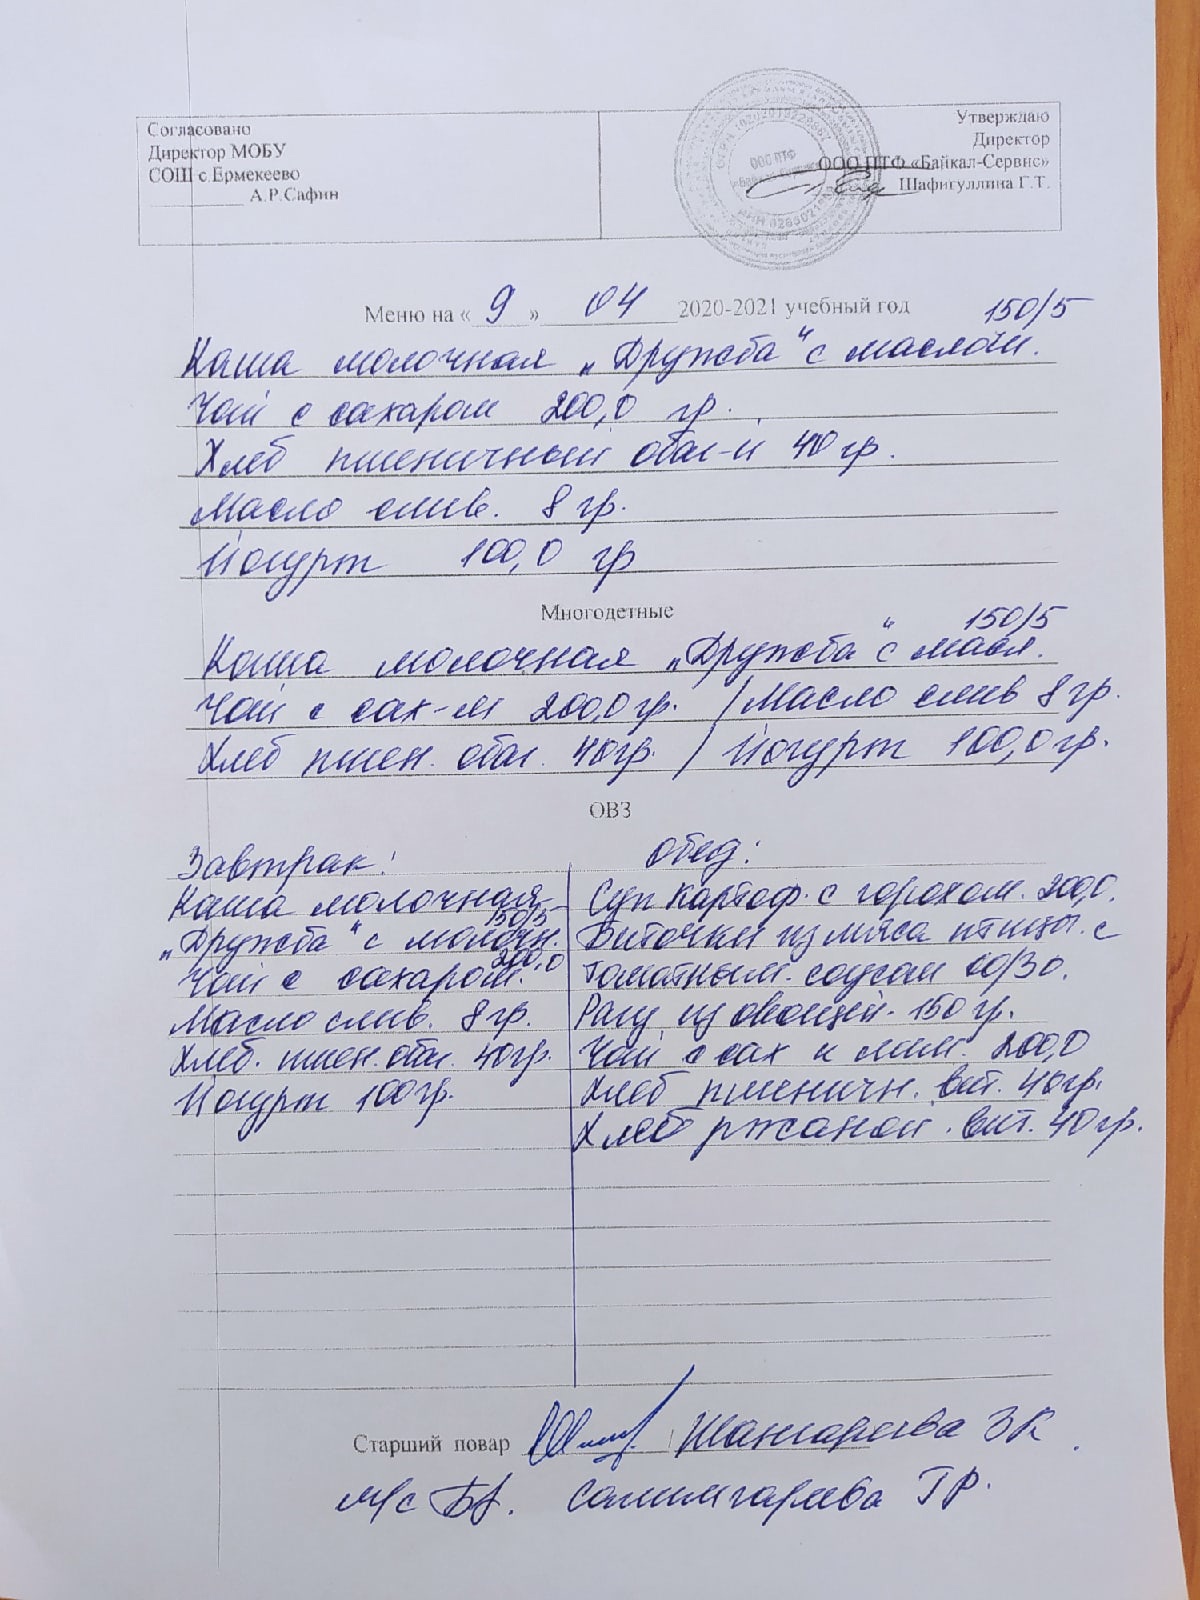 Согласовано
Директор МОБУ
СОШ с.Ермекеево
А.Р.Сафин
Утверждаю
Директор
ООО ПТФ «Байкал-Сервис»
Шафигуллина Г.Т.
ООО ПТФ
Меню на « 9 » 04 2020-2021 учебный год
150/5
Каша молочная „Дружба“ с маслом.
Чай с сахаром 200,0 гр.
Хлеб пшеничный обог-й 40 гр.
Масло слив. 8 гр.
Йогурт 100,0 гр
Многодетные
150/5
Каша молочная „Дружба“ с масл.
Чай с сах-м 200,0 гр. / Масло слив 8 гр.
Хлеб пшен. обог. 40гр. / Йогурт 100,0 гр.
ОВЗ
Завтрак:
Каша молочная
150/5
„Дружба“ с молочн.
200,0
Чай с сахаром.
Масло слив. 8 гр.
Хлеб. пшен. обог. 40гр.
Йогурт 100гр.
Обед:
Суп картоф. с горохом. 200,0.
Биточки из мяса птицы. с
томатным. соусом 60/30.
Рагу из овощей. 150 гр.
Чай с сах и лим. 200,0
Хлеб пшеничн. вит. 40гр.
Хлеб ржаной. вит. 40 гр.
Старший повар Шангареева З К
М/с Салимгареева Г Р.